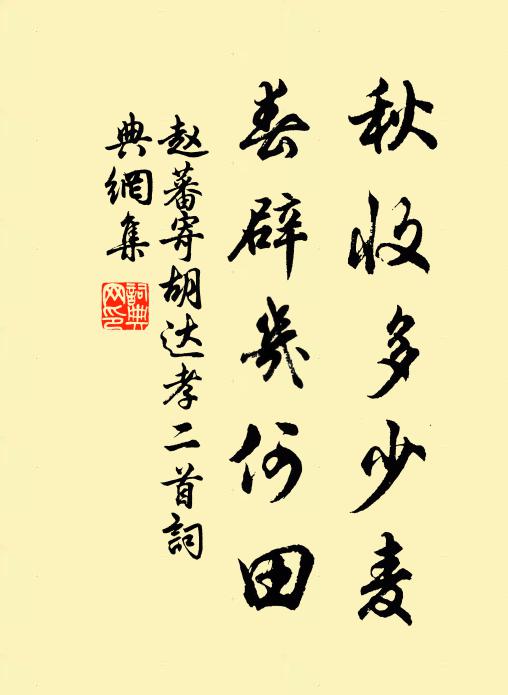 秋收多少麦
春辟几何田
赵蕃寄胡达孝二首詞
典網集
詞典
网印